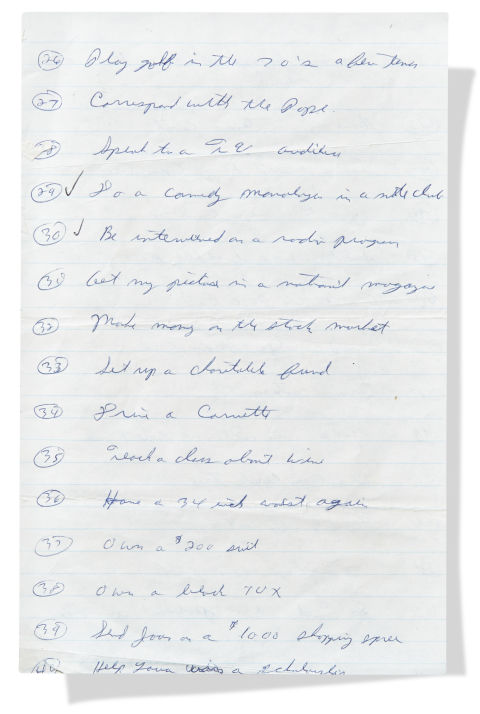 26 Play golf in the 70's a few times
27 Correspond with the Pope.
28 Speak to a TV audience
29 ✓ Do a comedy monologue in a nite club
30 ✓ Be interviewed on a radio program
31 Get my picture in a national magazine
32 Make money on the stock market
33 Set up a charitable fund
34 Drive a Corvette
35 Teach a class about wine
36 Have a 34 inch waist again
37 Own a $200 suit
38 Own a black TUX
39 Send Joan on a $1000 shopping spree
40 Help Laura win a scholarship